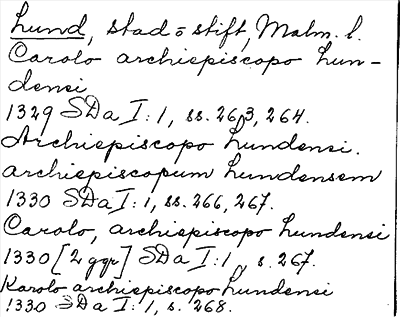 Lund, stad o stift, Malm. l.
Carolo archiepiscopo Lun-
densi
1329 SDa I: 1, ss. 263, 264.
Archiepiscopo Lundensi.
archiepiscopum Lundensem
1330 SDa I: 1, ss. 266, 267.
Carolo, archiepiscopo Lundensi
1330 [2 ggr] SDa I: 1, s. 267.
Karolo archiepiscopo Lundensi
1330 SDa I: 1, s. 268.